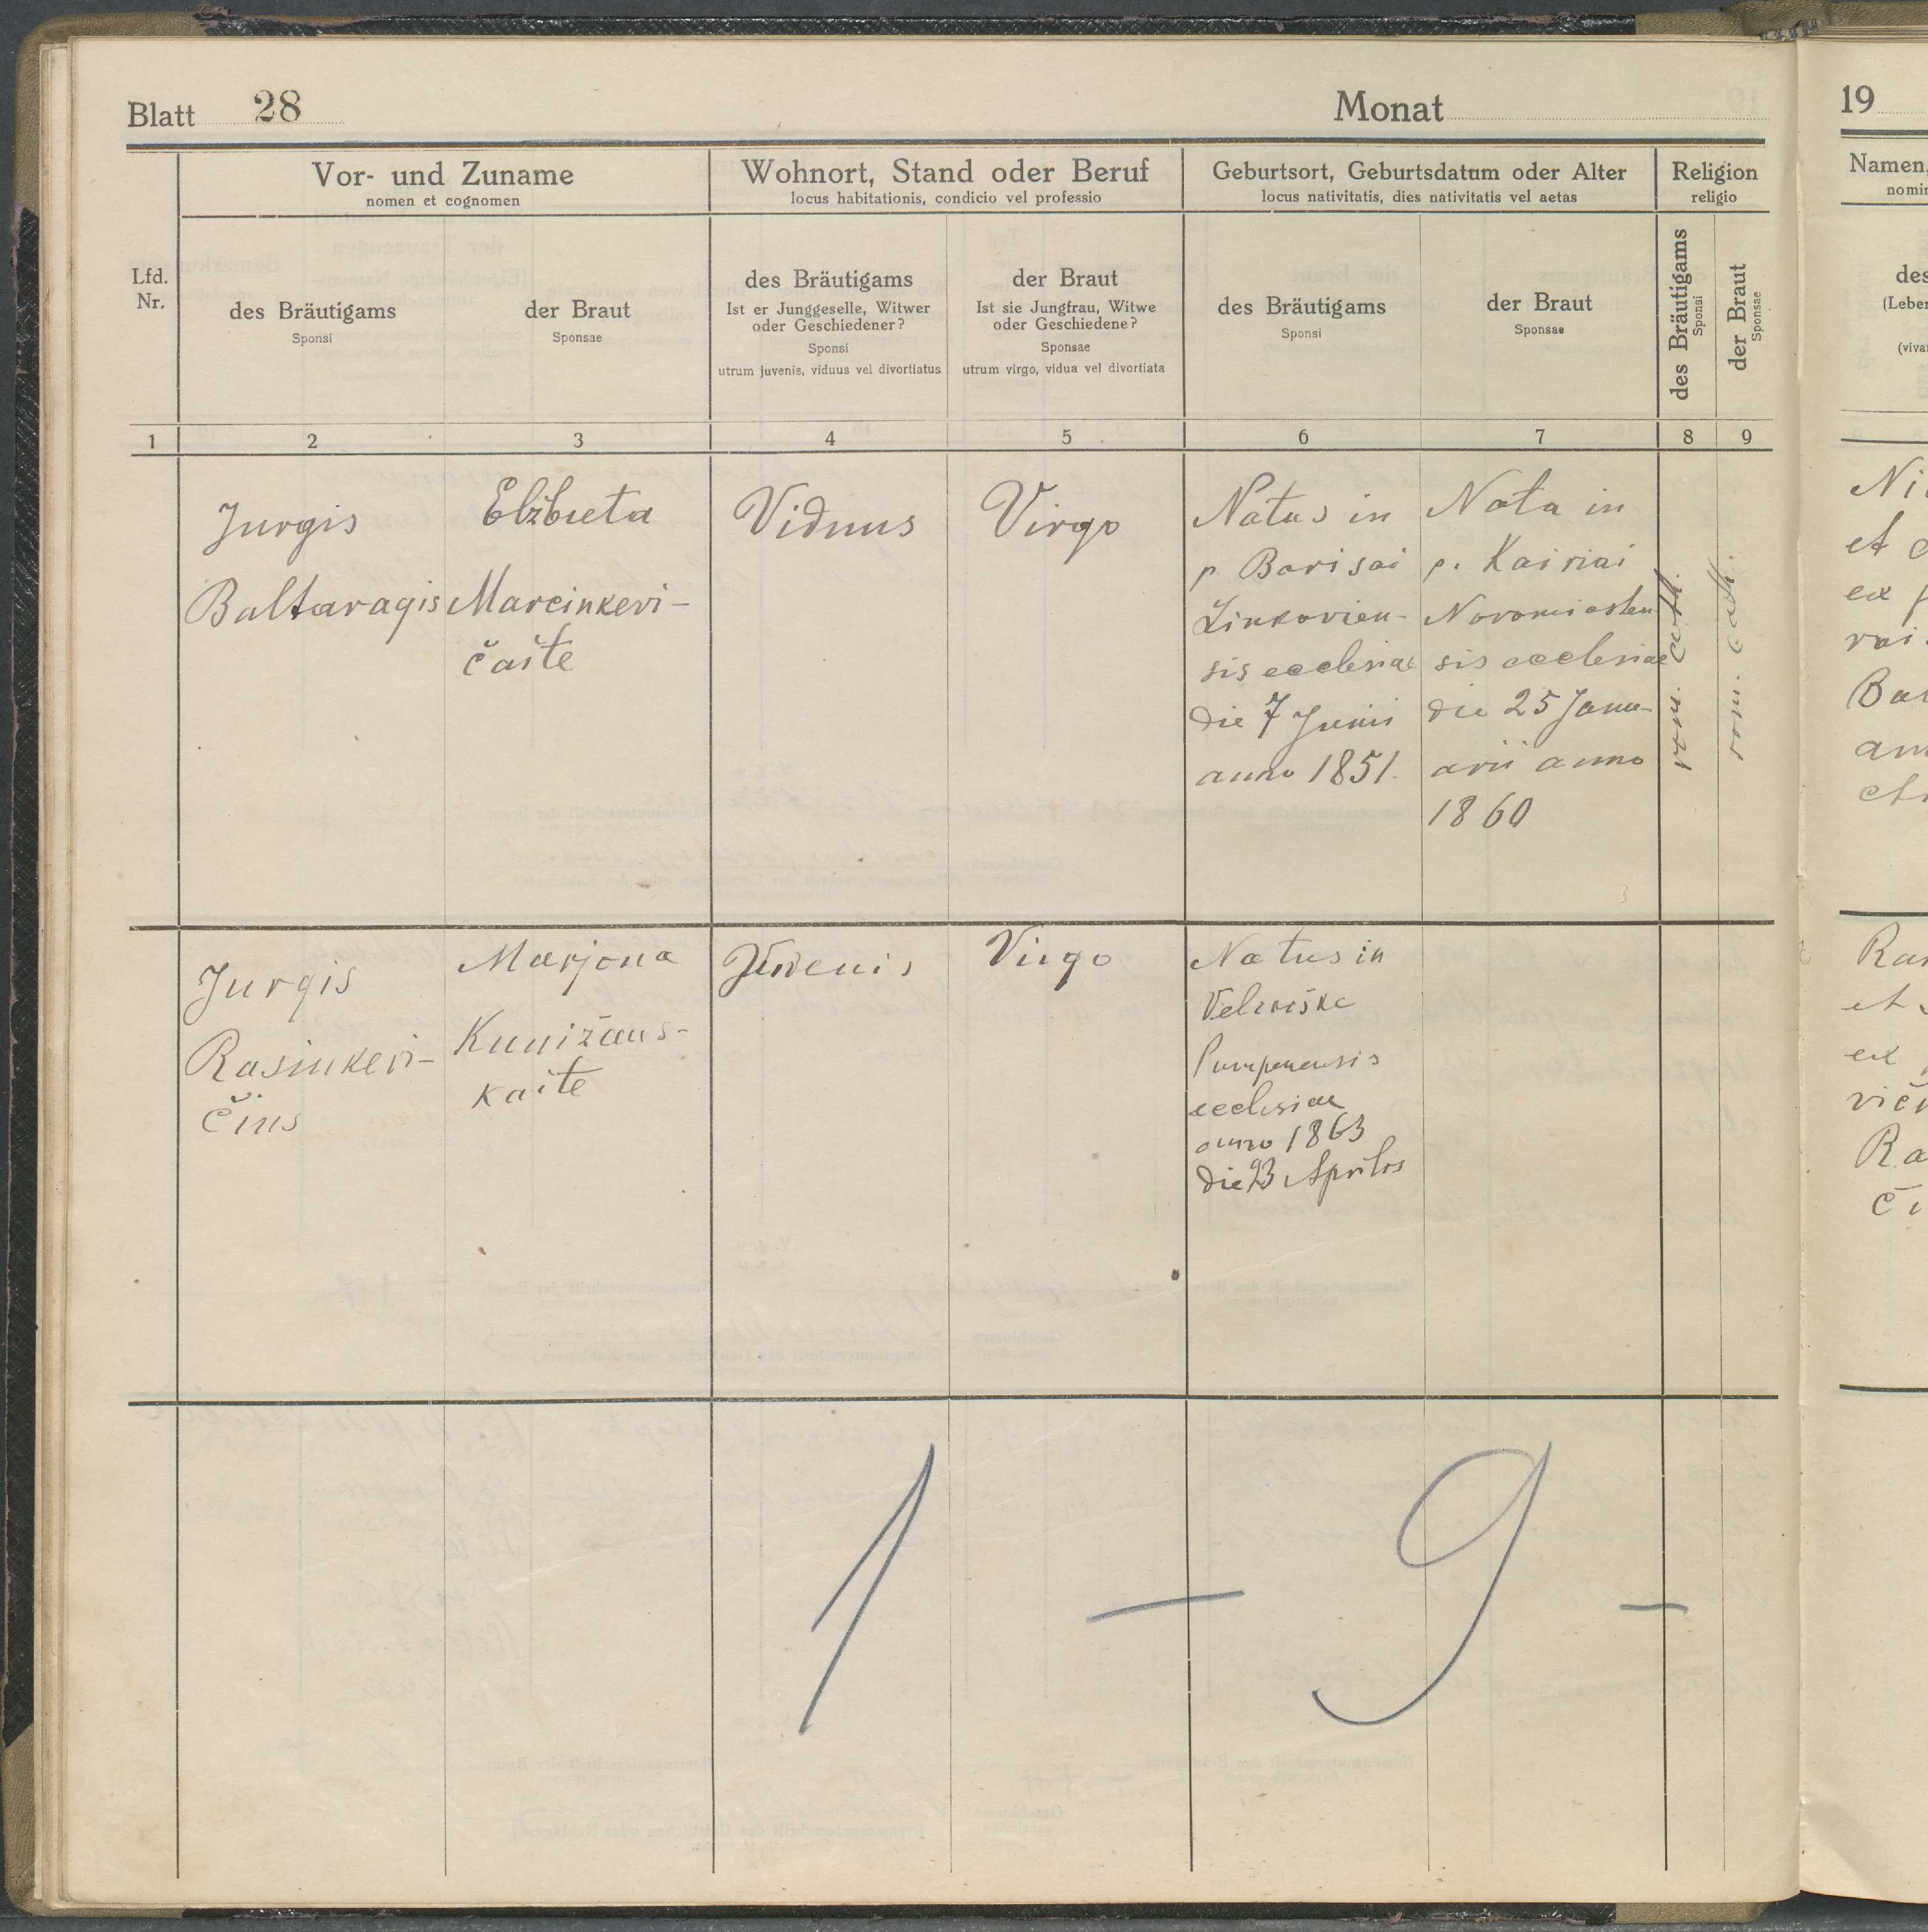 Blatt 28
Monat
Vor- und Zuname
nomen et cognomen
Wohnort, Stand oder Beruf
locus habitationis, condicio vel professio
Geburtsort, Geburtsdatum oder Alter
locus nativitatis, dies nativitatis vel aetas
Religion
religio
Lfd.
Nr.
des Bräutigams
Sponsi
der Braut
Sponsae
des Bräutigams
Ist er Junggeselle, Witwer
oder Geschiedener?
Sponsi
utrum juvenis, viduus vel divortiatus
der Braut
Ist sie Jungfrau, Witwe
oder Geschiedene?
Sponsae
utrum virgo, vidua vel divortiata
des Bräutigams
Sponsi
der Braut
Sponsae
des Bräutigams
Sponsi
der Braut
Sponsae
1 2 3 4 5 6 7 8 9
Jurgis
Baltaragis
Elžbieta
Marcinkevi-
čaite
Viduus
Virgo
Natus in
p. Barisai
Linkovien-
sis ecclesiae
die 7 Junii
anno 1851.
Nata in
p. Kairiai
Novomiasten
sis ecclesiae
die 25 Janu-
arii anno
1860
rom. cath.
rom. cath.
Jurgis
Rasinkevi-
čius
Marjona
Kunižaus-
kaite
Juvenis
Virgo
Natus in
Pumpenensis
ecclesiae
anno 1863
die 23 Aprilis
1 - 9 -
19
Namen,